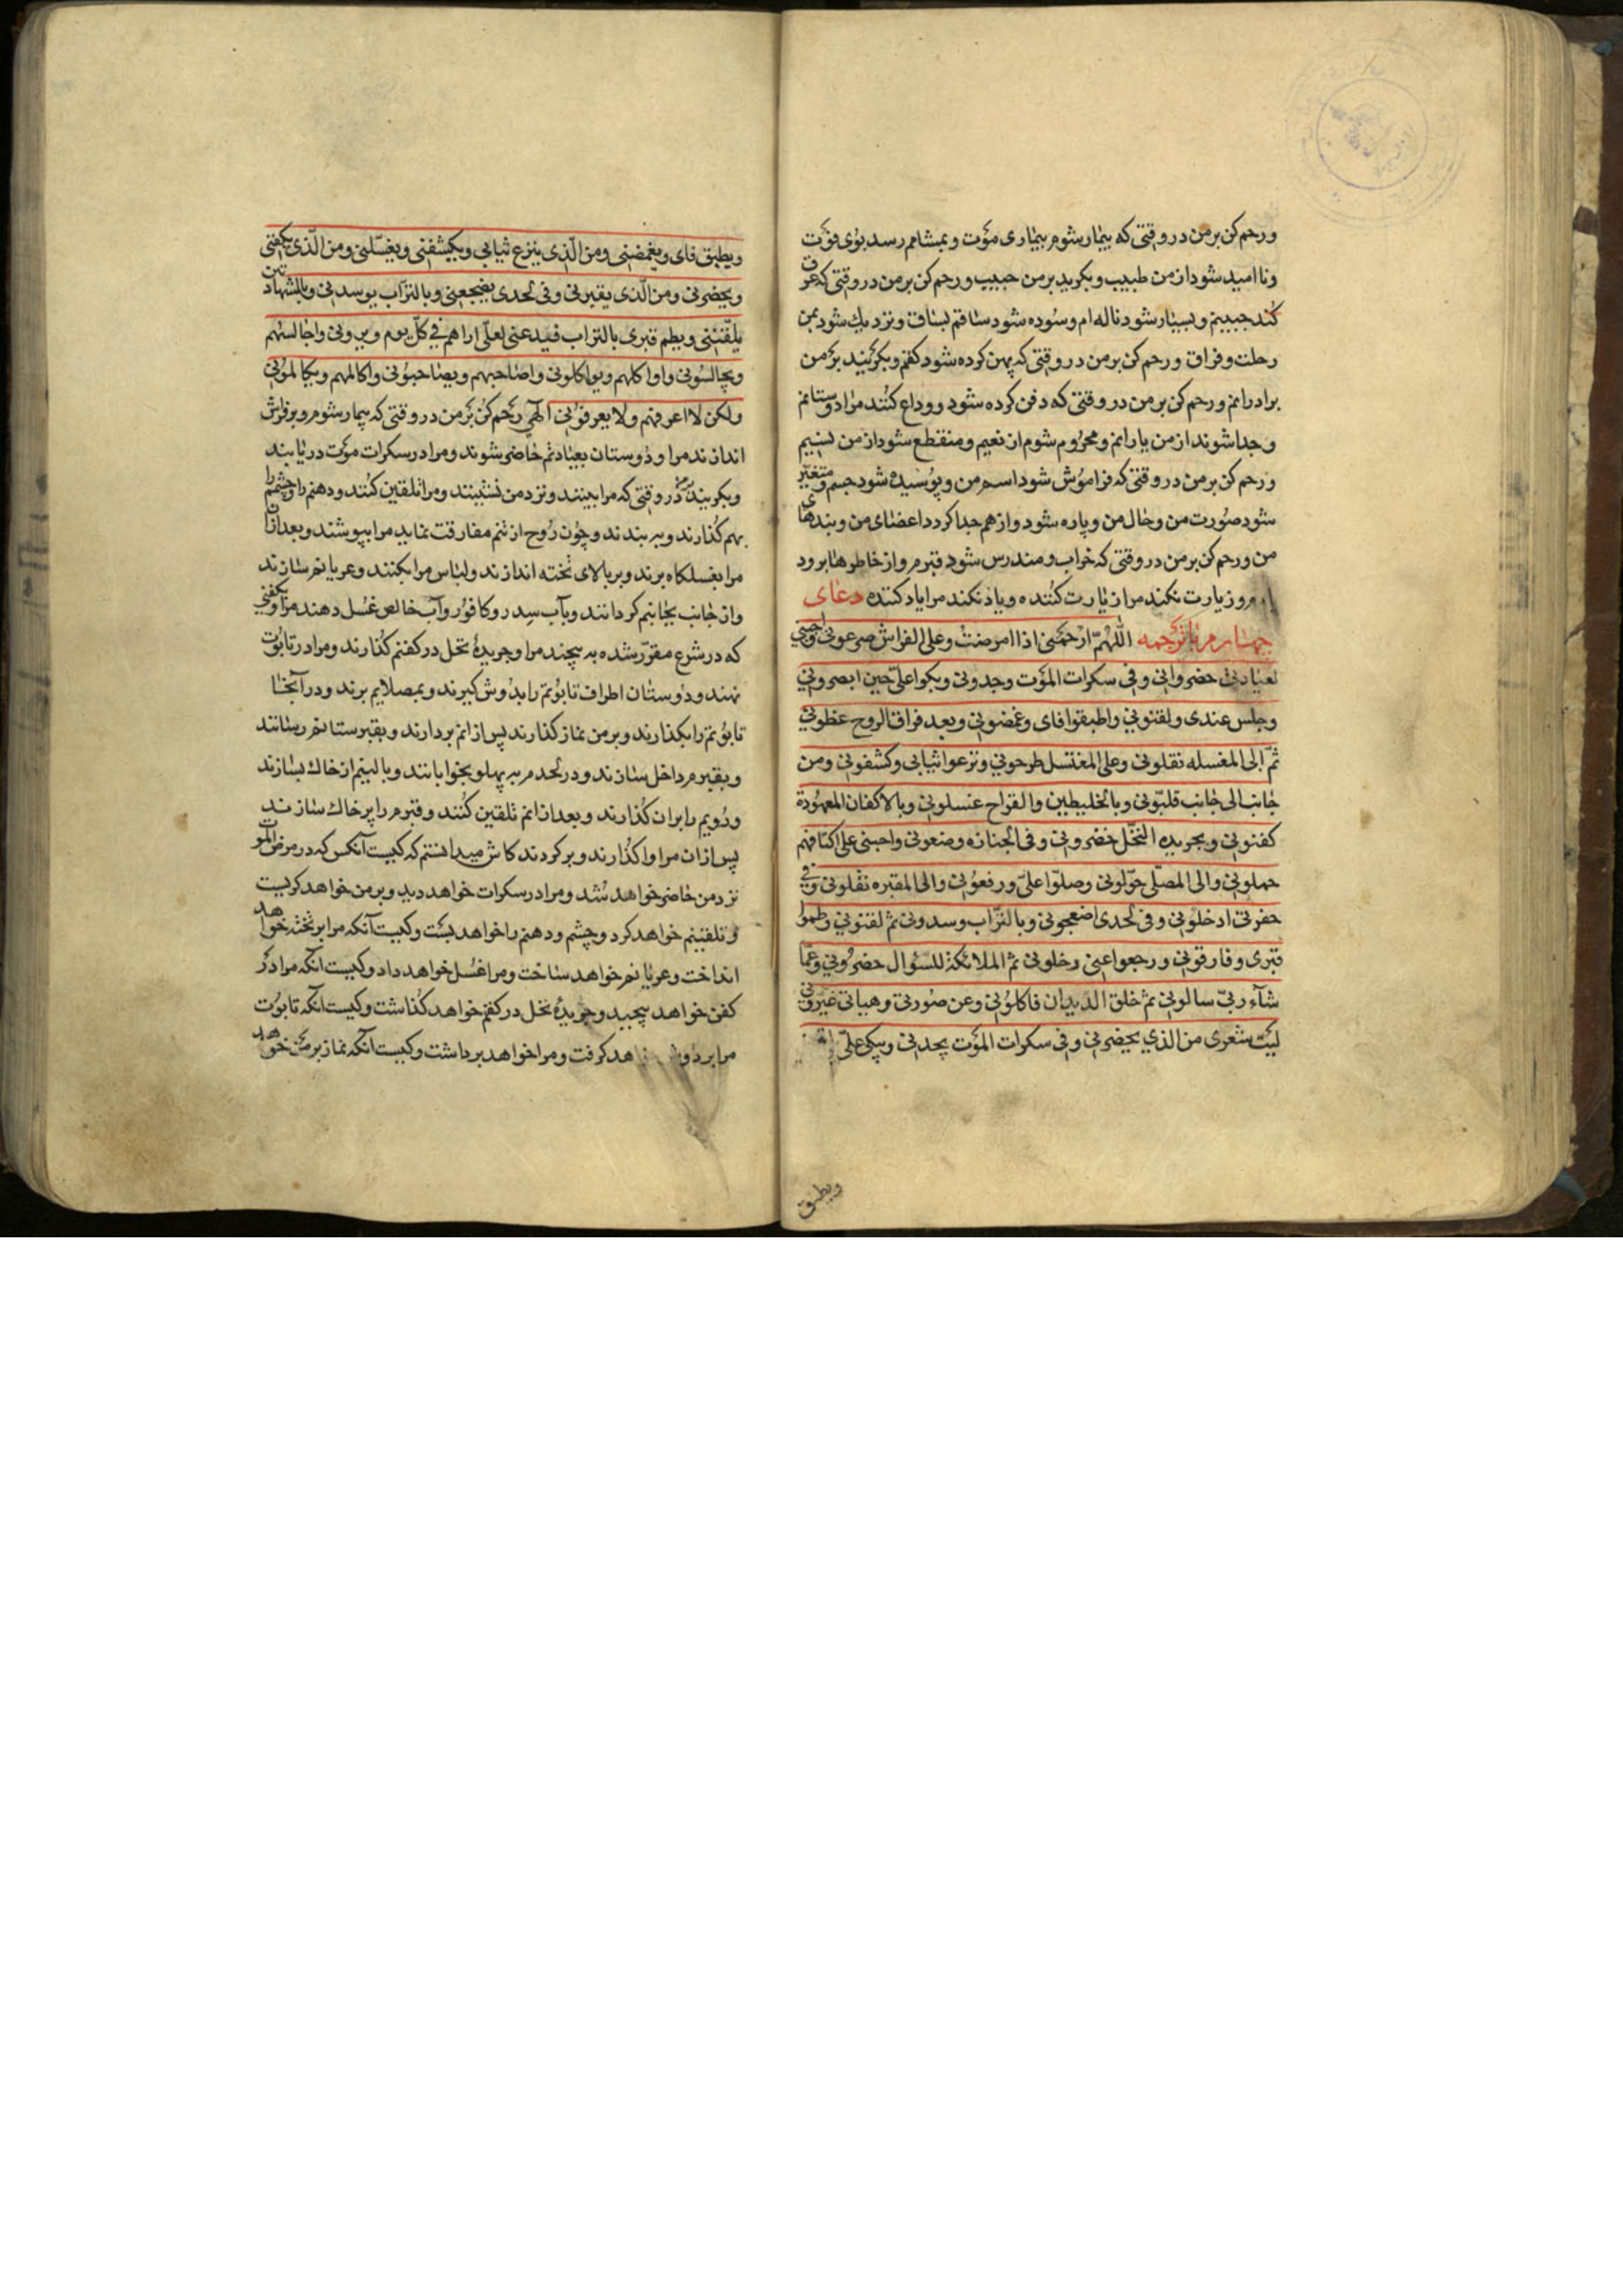 ورحم کن بر من در وقتی که بیمار شوم بیماری موت و بمشامم رسد بوی فوت
و ناامید شود از من طبیب و بکرید بر من حبیب و رحم کن بر من در وقتی که عرق
کند جبینم و بسیار شود ناله ام و سوده شود ساقم بساق و نزدیک شود بمن
رحلت و فراق و رحم کن بر من در وقتی که پهن کرده شود کفنم و بکریند بر من
برادرانم و رحم کن بر من در وقتی که دفن کرده شوم و وداع کنند مرا دوستانم
و جدا شوند از من یارانم و محروم شوم از نعیم و منقطع شود از من نسیم
و رحم کن بر من در وقتی که فراموش شود اسم من و پوسیده شود جسم و متغیر
شود صورت من و حال من و پاره شود و از هم جدا کردد اعضای من و بندهای
من و رحم کن بر من در وقتی که خراب و مندرس شود قبرم و از خاطرها برود
و زیارت نکند مرا زیارت کننده و یاد نکند مرا یاد کننده دعای
چهارم با ترجمه اللهم ارحمنی اذا امرضت و علی الفراش صرعونی
لعیادتی حضروانی و فی سکرات الموت وجدونی و بکوا علی حین ابصرونی
و جلس عندی و لقنونی و اطبقوا فای و غمضونی و بعد فراق الروح غطونی
ثم الی المغسله نقلونی و علی المغتسل طرحونی و نزعوا ثیابی و کشفونی و من
جانب الی جانب قلبونی و بالخلیطین و القراح غسلونی و بالاکفان المعهودة
کفنونی و بجریده النخل خضرونی و فی الجنازه وضعونی و احبتی علی اکتافهم
حملونی و الی المصلی حولونی و صلوا علی و رفعونی و الی المقبره نقلونی و فی
حفرتی ادخلونی و فی لحدی اضجعونی و بالتراب وسدونی ثم لقنونی و طموا
قبری و فارقونی و رجعوا عنی و خلونی ثم الملائکة للسئوال حضرونی و عما
شاء ربی سالونی ثم خلق الدیدان فاکلونی و عن صورتی و هیاتی غیرونی
لیت شعری من الذي یحضرنی و فی سکرات الموت یجدنی و یبکی علی
ویطبق
ویطبق فای و یغمضنی و من الذی ینزع ثیابی و یکشفنی و یغسلنی و من الذی یکفننی
و یخضرنی و من الذی یقبرنی و فی لحدی یضجعنی و بالتراب یوسدنی و بالشهادتین
یلقننی و یطم قبری بالتراب فیدعنی لعلی اراهم فی کل یوم و یرونی و اجالسهم
و یجالسونی و اواکلهم و یواکلونی و اصاحبهم و یصاحبونی و اکالمهم و یکالمونی
ولکن لا اعرفهم و لا یعرفونی الهی رحم کن بر من در وقتی که بیمار شوم و بر فراش
اندازند مرا و دوستان بعیادتم حاضر شوند و مرا در سکرات موت دریابند
و بکریند در وقتی که مرا بینند و نزد من نشینند و مرا تلقین کنند و دهنم را و چشمم را
بهم کذارند و به بندند و چون روح از تنم مفارقت نماید مرا بپوشند و بعد از ان
مرا بغسلکاه برند و بر بالای تخته اندازند و لباس مرا بکنند و عریانم سازند
و از جانب بجانبم کردانند و بآب سدر و کافور و آب خالص غسل دهند مرا و بکفنی
که در شرع مقرر شده به پیچند مرا و جریدهٔ نخل در کفنم کذارند و مرا در تابوت
نهند و دوستان اطراف تابوتم را بدوش کیرند و بمصلایم برند و در آنجا
تابوتم را بکذارند و بر من نماز کذارند پس از انم بردارند و بقبرستانم رسانند
و بقبرم داخل سازند و در لحدم به پهلو بخوابانند و بالینم از خاك بسازند
و رویم را بران کذارند و بعد از انم تلقین کنند و قبرم را پر خاك سازند
پس از ان مرا واکذارند و بر کردند کاش میدانستم که کیست آنکس که در مرض الموت
نزد من حاضر خواهد شد و مرا در سکرات خواهد دید و بر من خواهد کریست
و تلقینم خواهد کرد و چشم و دهنم را خواهد بست و کیست آنکه مرا بر تخته خواهد
انداخت و عریانم خواهد ساخت و مرا غسل خواهد داد و کیست آنکه مرا در
کفن خواهد پیچید و جریدهٔ نخل در کفنم خواهد کذاشت و کیست آنکه تابوت
مرا بر دوش خواهد کرفت و مرا خواهد برداشت و کیست آنکه نماز بر من خواهد